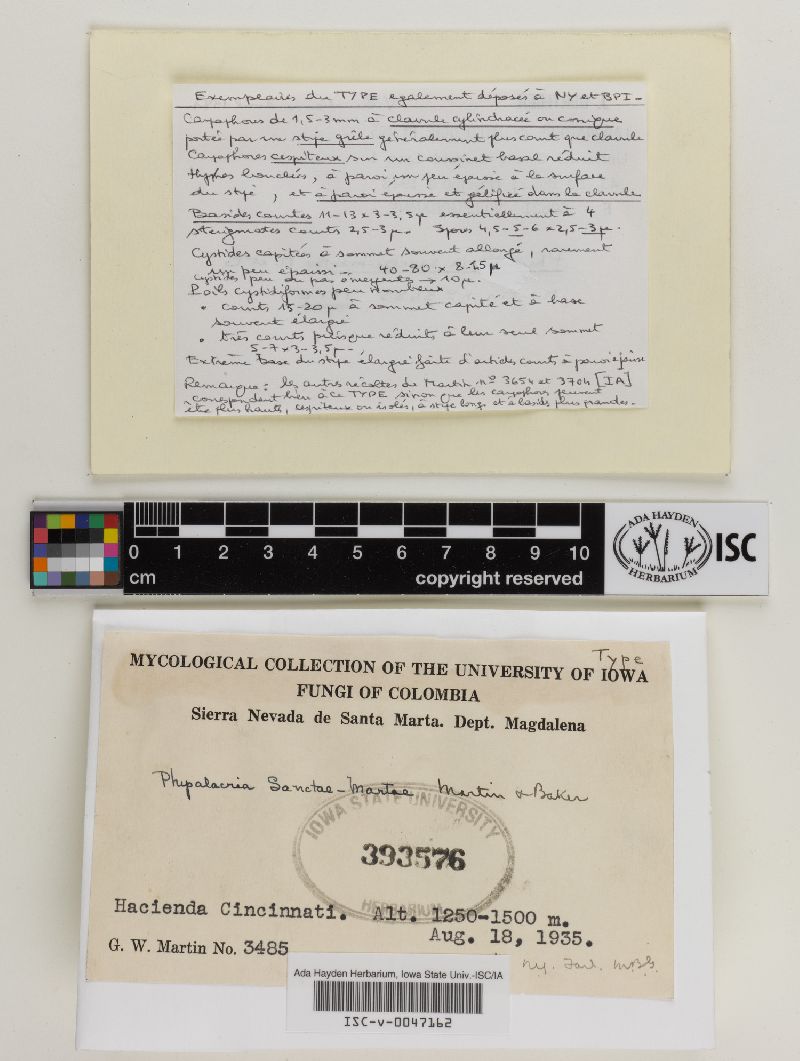 Exemplaires du TYPE également déposés à NY et BPI_
Carpophores de 1,5-3mm à clavule cylindracée ou conique
portée par un stipe grêle généralement plus court que clavule
Carpophores cespiteux sur un coussinet basal réduit
Hyphes bouclées, à paroi un peu épaisse à la surface
du stipe, et à paroi épaisse et gélifiée dans la clavule
Basides courtes 11-13 x 3-3,5µ essentiellement à 4
stérigmates courts 2,5-3µ. Spores 4,5-5-6 x 2,5-3µ.
Cystides capitées à sommet souvent allongé, rarement
un peu épaissi_ 40-80 x 8-15µ
cystides peu ou pas émergentes → 10µ.
Poils cystidiformes peu nombreux
• courts 15-20µ à sommet capité et à base
souvent élargie
• très courts presque réduits à leur seul sommet
5-7 x 3-3,5µ_
Extrême base du stipe élargie faite d'articles courts à paroi épaisse
Remarque: les autres récoltes de Martin nº 3654 et 3704 [IA]
correspondent bien à ce TYPE sinon que les carpophores peuvent
être plus hauts, cespiteux ou isolés, à stipe long et à basides plus grandes_
0 1 2 3 4 5 6 7 8 9 10
cm copyright reserved
ADA HAYDEN
HERBARIUM
ISC
Type
MYCOLOGICAL COLLECTION OF THE UNIVERSITY OF IOWA
FUNGI OF COLOMBIA
Sierra Nevada de Santa Marta. Dept. Magdalena
Physalacria Sanctae-Martae Martin & Baker
IOWA STATE UNIVERSITY
393576
HERBARIUM
Hacienda Cincinnati. Alt. 1250-1500 m.
Aug. 18, 1935.
G. W. Martin No. 3485
NY. Farl. MBG.
Ada Hayden Herbarium, Iowa State Univ.-ISC/IA
ISC-v-0047162